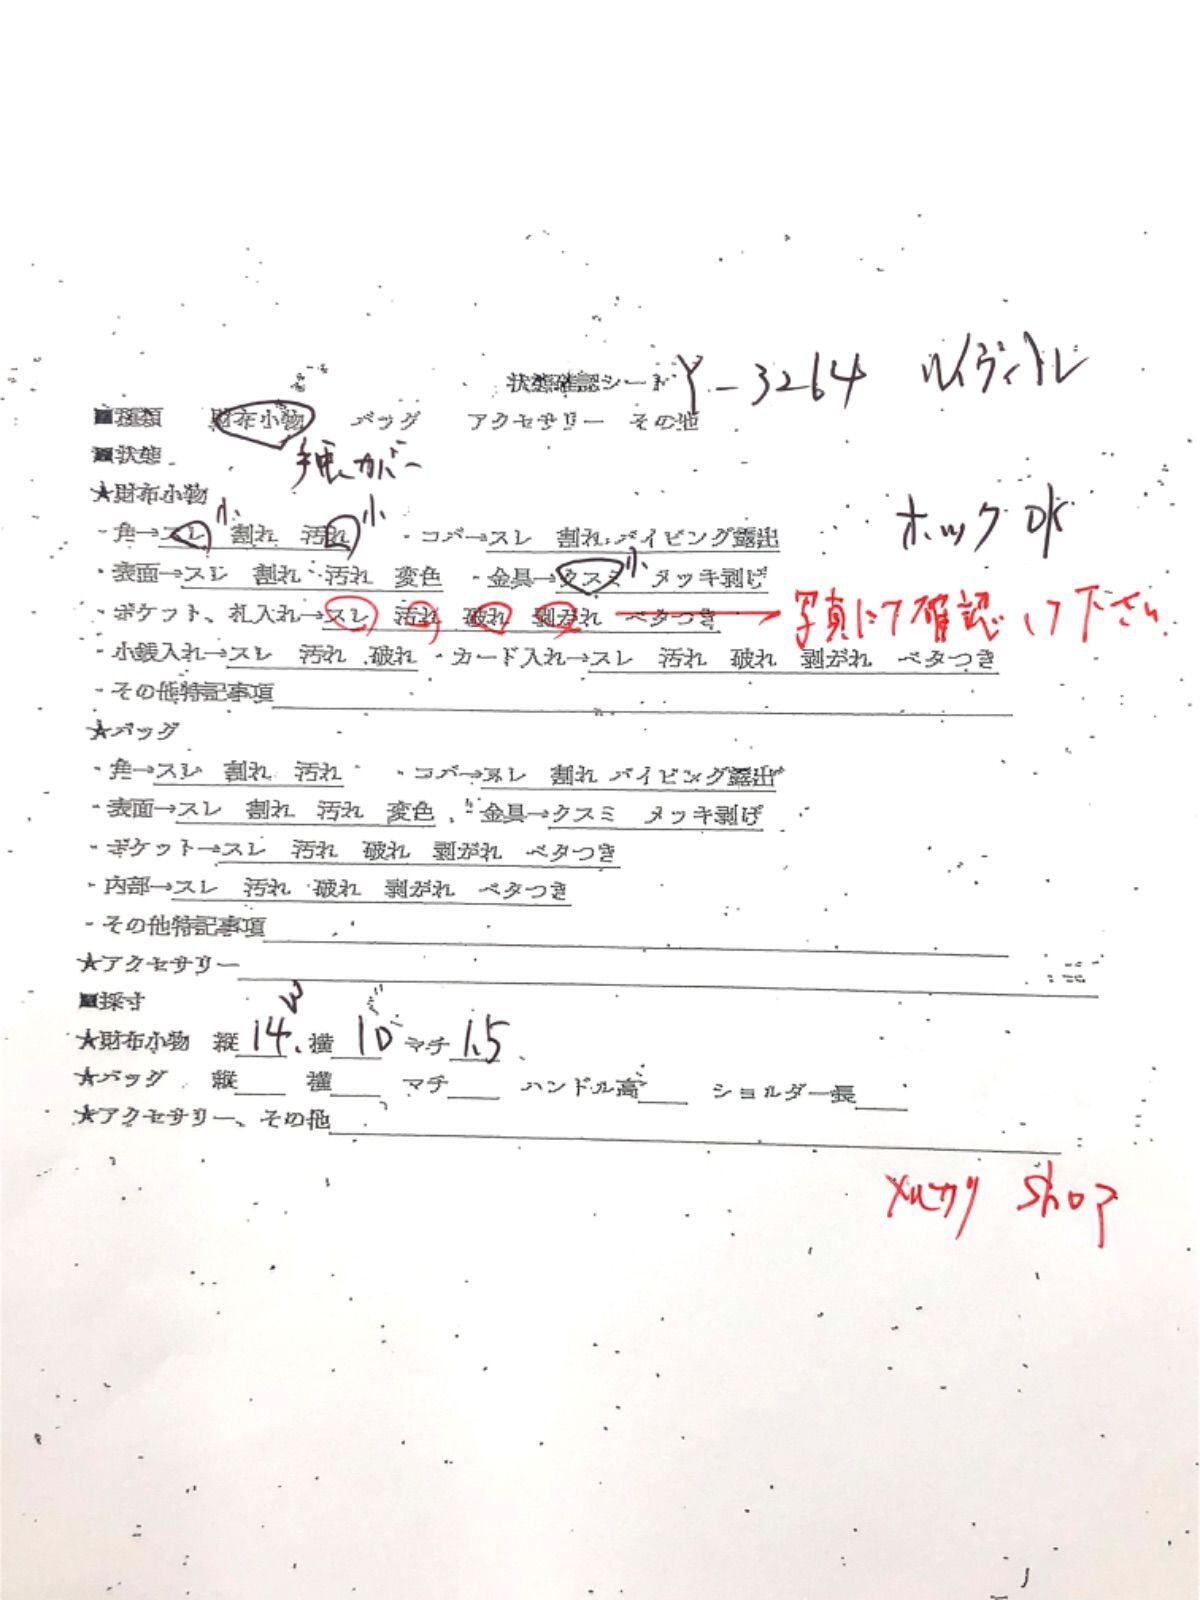 状態確認シート Y-3264 ルイヴィトン
■種類 財布小物 バッグ アクセサリー その他
■状態 手帳カバー
★財布小物
・角→スレ 小 割れ 汚れ 小 ・コバ→スレ 割れ パイピング露出 ホック OK
・表面→スレ 割れ 汚れ 変色 ・金具→クスミ 小 メッキ剥げ
・ポケット、札入れ→スレ 汚れ 破れ 剥がれ ベタつき → 写真にて確認して下さい
・小銭入れ→スレ 汚れ 破れ ・カード入れ→スレ 汚れ 破れ 剥がれ ベタつき
・その他特記事項
★バッグ
・角→スレ 割れ 汚れ ・コバ→スレ 割れ パイピング露出
・表面→スレ 割れ 汚れ 変色 ・金具→クスミ メッキ剥げ
・ポケット→スレ 汚れ 破れ 剥がれ ベタつき
・内部→スレ 汚れ 破れ 剥がれ ベタつき
・その他特記事項
★アクセサリー
■採寸
★財布小物 縦 14 横 10 マチ 1.5
★バッグ 縦 横 マチ ハンドル高 ショルダー長
★アクセサリー、その他
メルカリ shop